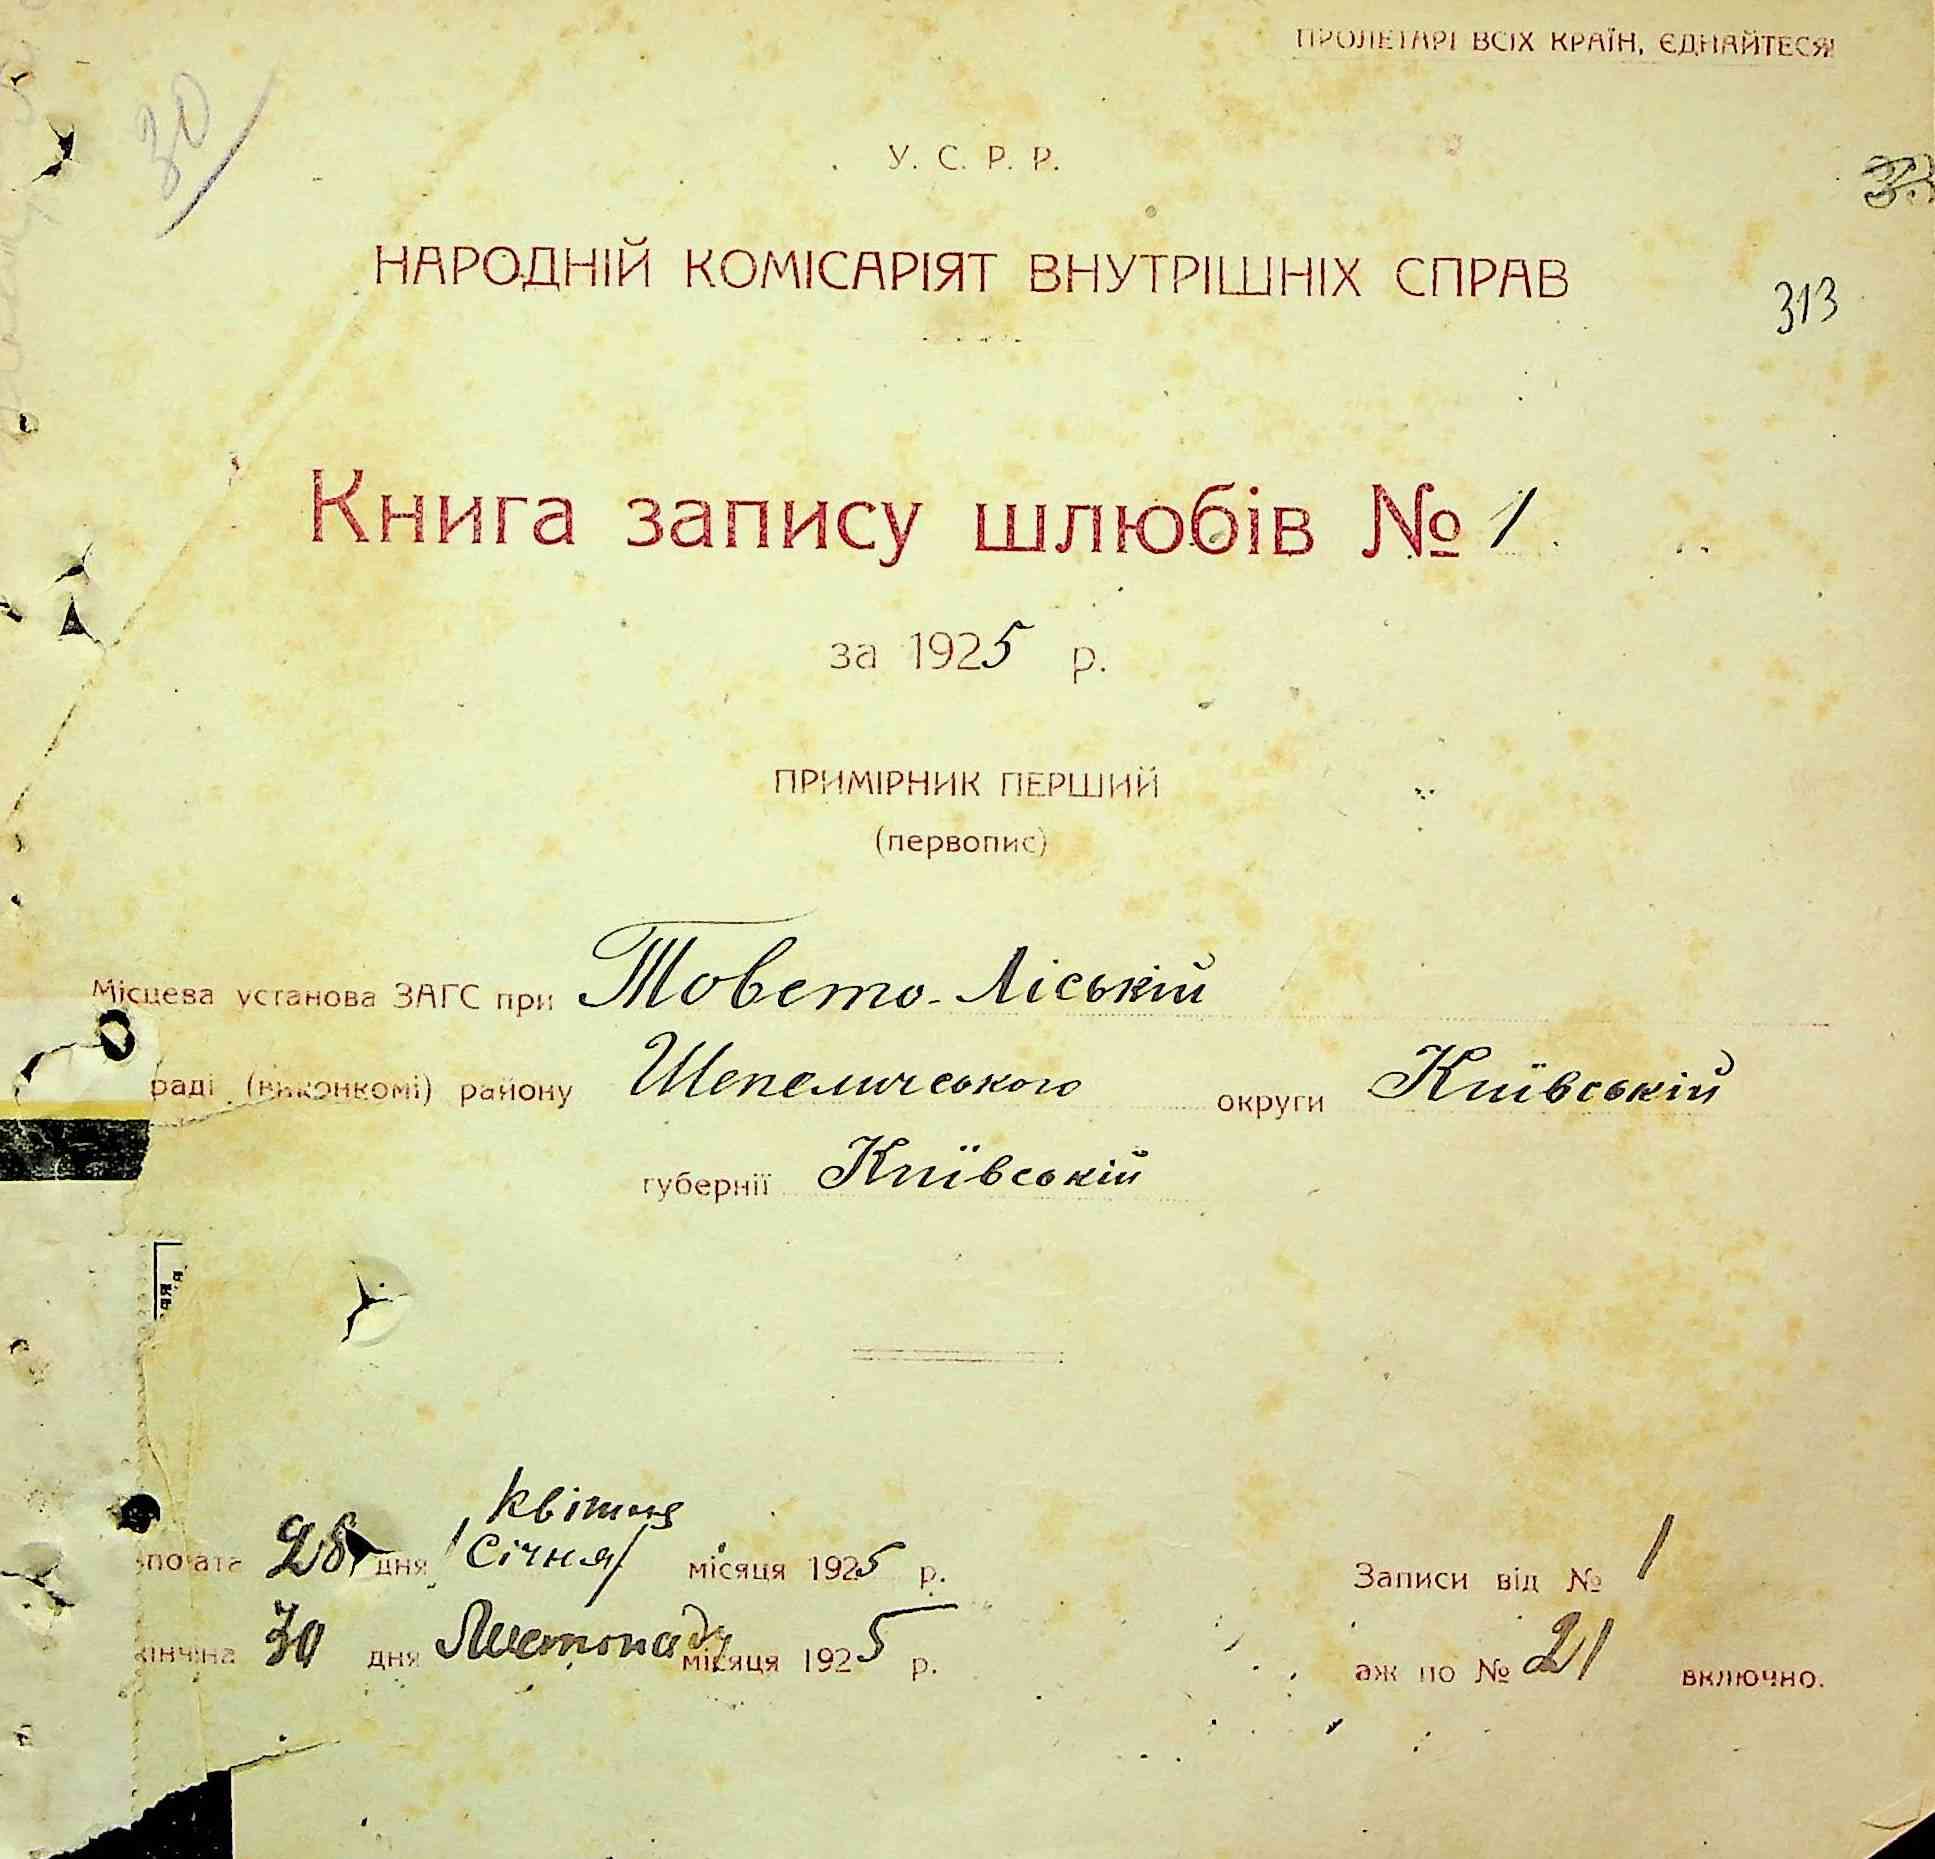 ПРОЛЕТАРІ ВСІХ КРАЇН, ЄДНАЙТЕСЯ!
30
У. С. Р. Р.
НАРОДНІЙ КОМІСАРІЯТ ВНУТРІШНІХ СПРАВ
313
Книга запису шлюбів № 1
за 1925 р.
ПРИМІРНИК ПЕРШИЙ
(первопис)
Місцева установа ЗАГС при Товсто-Ліській
раді (виконкомі) району Шепеличського округи Київській
губернії Київській
квітня
почата 28 дня /Січня/ місяця 1925 р.
Записи від № 1
кінчина 30 дня Листопаду місяця 1925 р.
аж по № 21 включно.